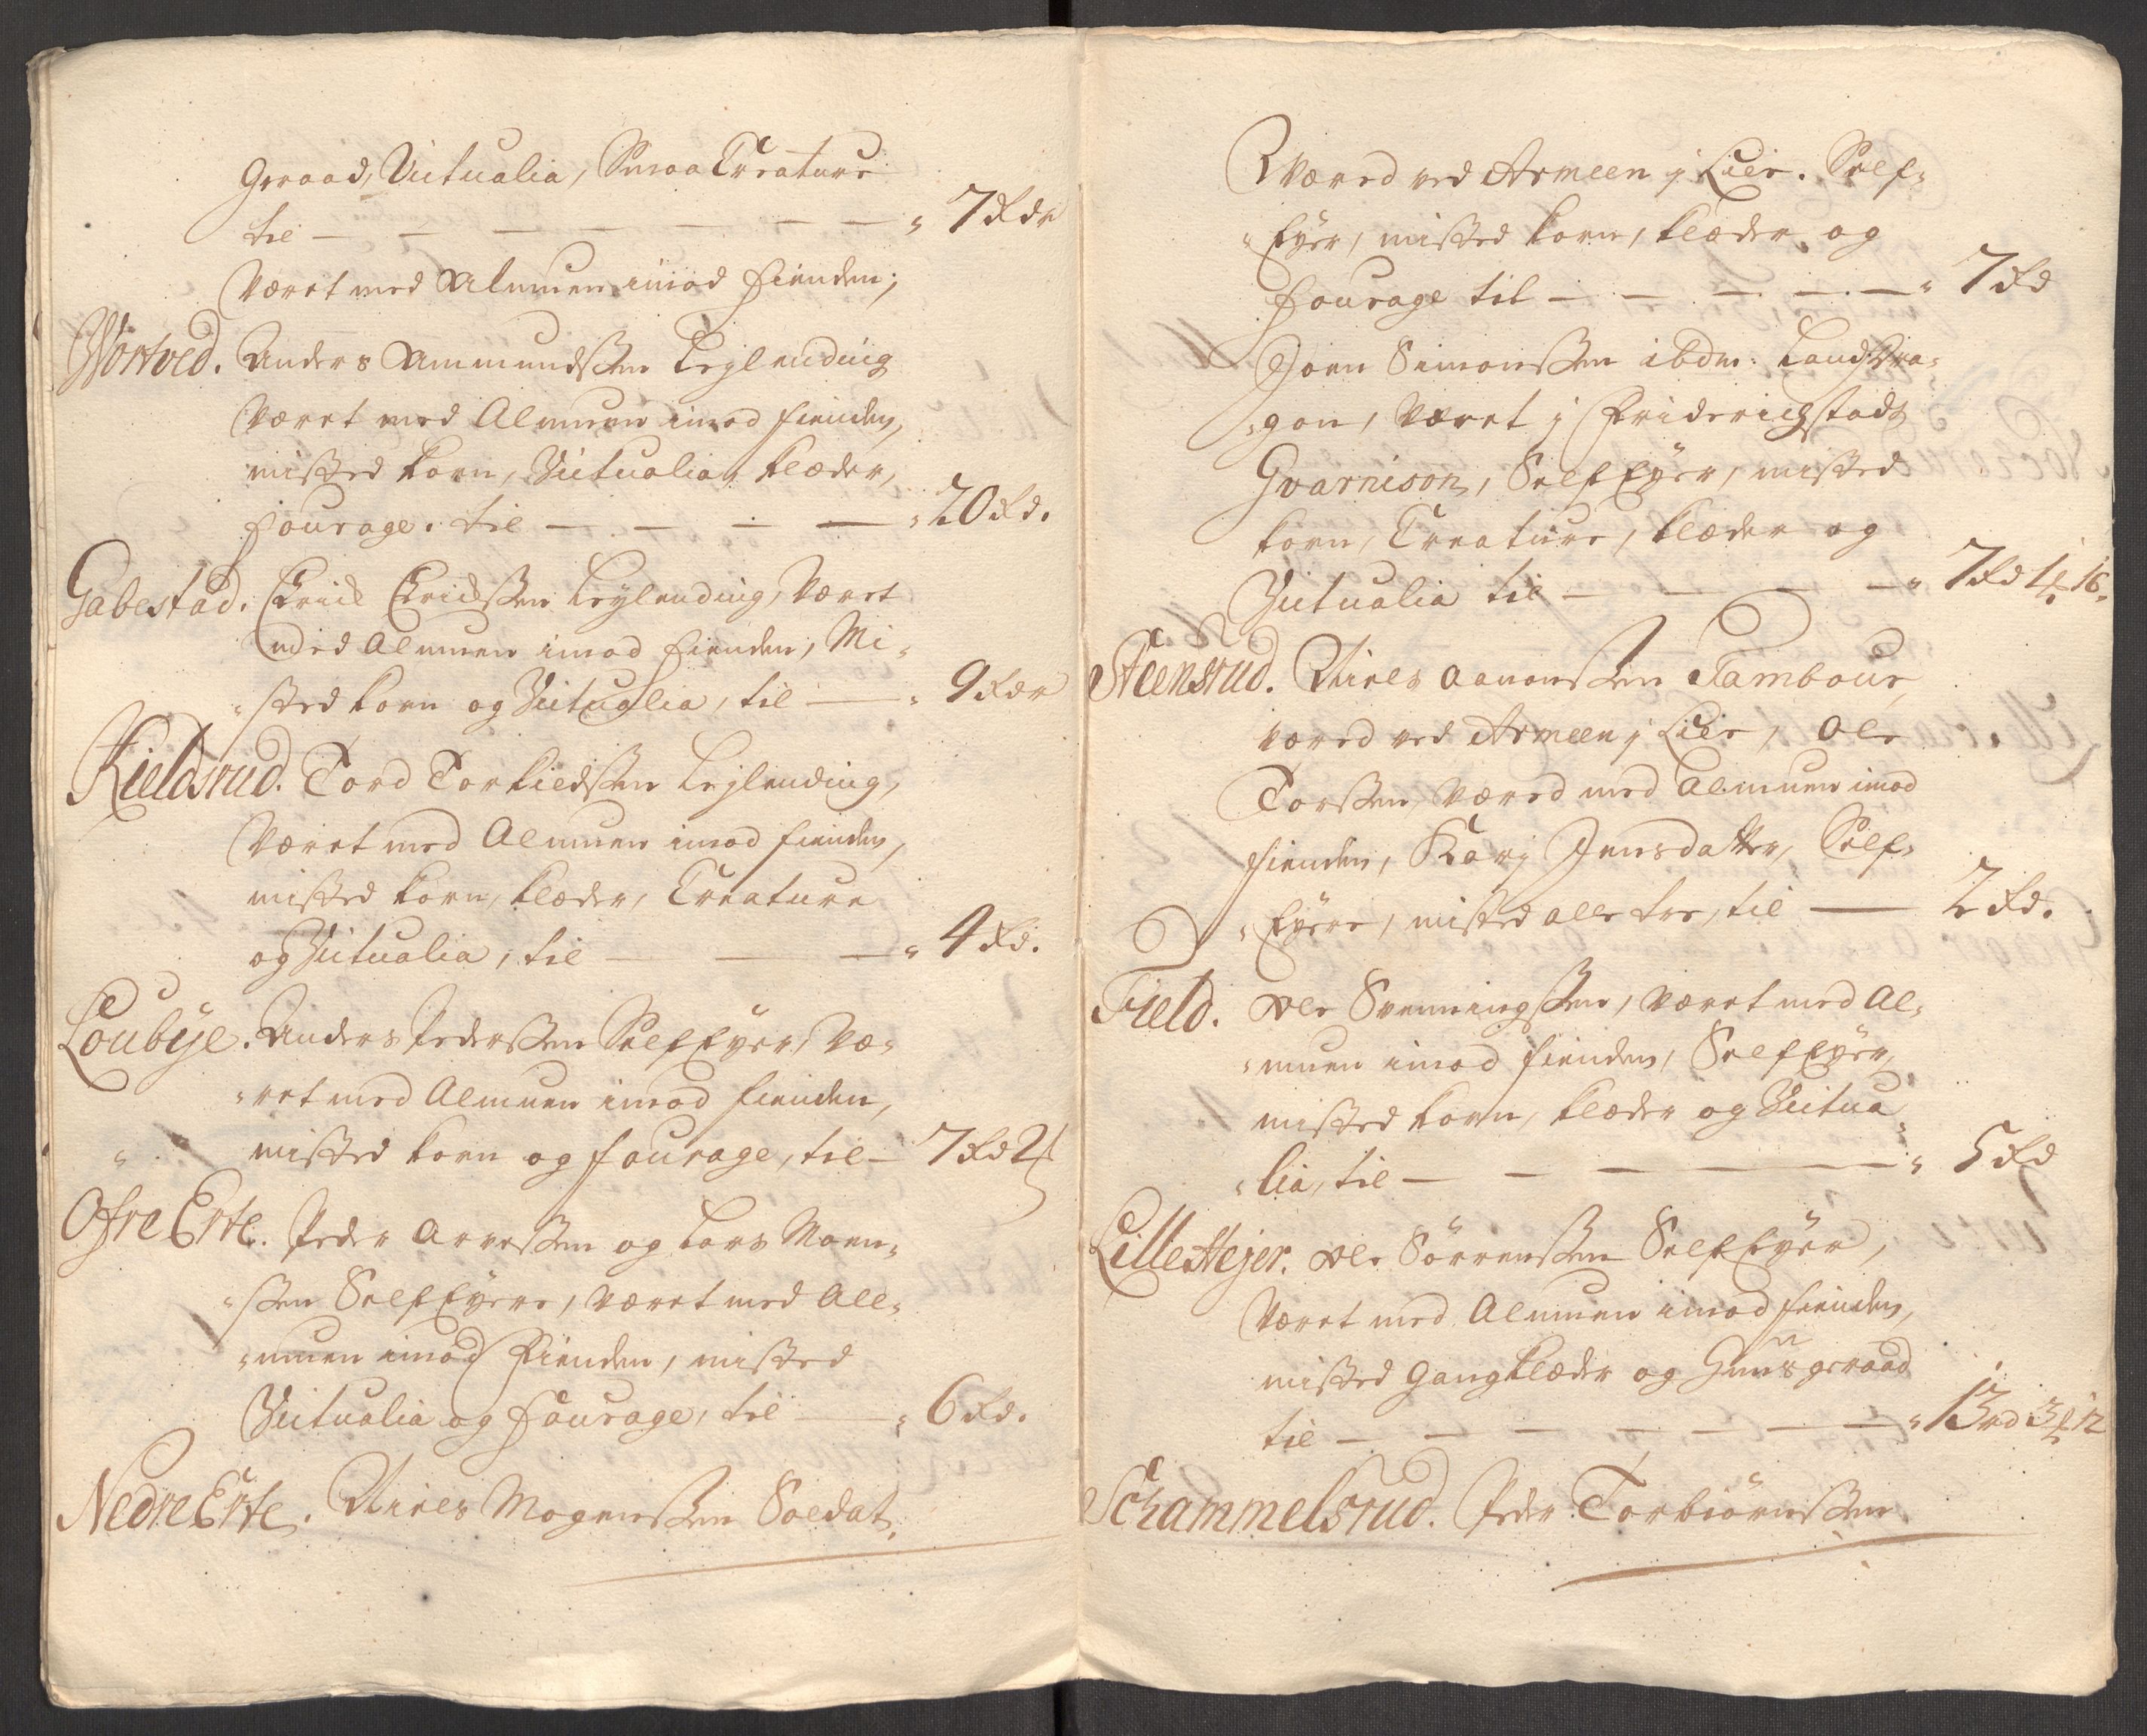 Geraad, Victualia, Smaa Creature
til — — — — — — " 7 Rdr
Været med Almuen imod fienden;
Wortved. Anders Ammundssen Leylending
Været med Almuen imod fienden,
misted korn, Victualia, klæder,
fourage. til — — — — " 20 Rd.
Gabestad. Erick Erichssen Leylending, Været
med Almuen imod fienden, Mi-
"sted korn og Victualia, til — " 9 Rdr
Kieldsrud. Tord Torkieldssen Leylending,
Været med Almuen imod fienden,
misted korn, klæder, Creature
og Victualia, til — — — " 4 Rd.
Loubye. Anders Pederssen Self Eyer, Væ-
"ret med Almuen imod fienden,
" misted korn og fourage, til — 7 Rd 2
Ofre Erte. Peder Arvessen og Lars Moen-
"ssen Self Eyere, Været med All-
"muen imod Fienden, misted
Victualia og fourage, til — " 6 Rd.
Nedre Erte. Niels Mogenssen Soldat,
Wæred ved Armeen j Lier. Self-
"Eyer, misted korn, klæder og
fourage til — — — — — " 7 Rd
Joen Simonssen ibdm: Land Dra-
"gon, Været j Friderichstads
Gvarnison, Self Eyer, misted
korn, Creature, klæder og
Victualia til — — — — " 7 Rd 1 16.
Steensrud. Niels Aamonssen Tambour,
væred ved Armeen j Lier, Ole
Torssen, Væred med Almuen imod
fienden, Karj Jensdatter, Self-
"Eyere, misted alle tre, til — 2 Rd.
Field. Ole Svenningssen, Været med Al-
"muen imod fienden, Self Eyer,
misted korn, klæder og Victua-
"lia, til — — — — — " 5 Rd
Lille Hejer. Ole Sörrenssen Self Eyer,
Været med Almuen imod fienden,
misted Gangklæder og Huusgeraad
til — — — — — — — " 13 rd 3 12
Schammelsrud. Peder Torbiörnssen